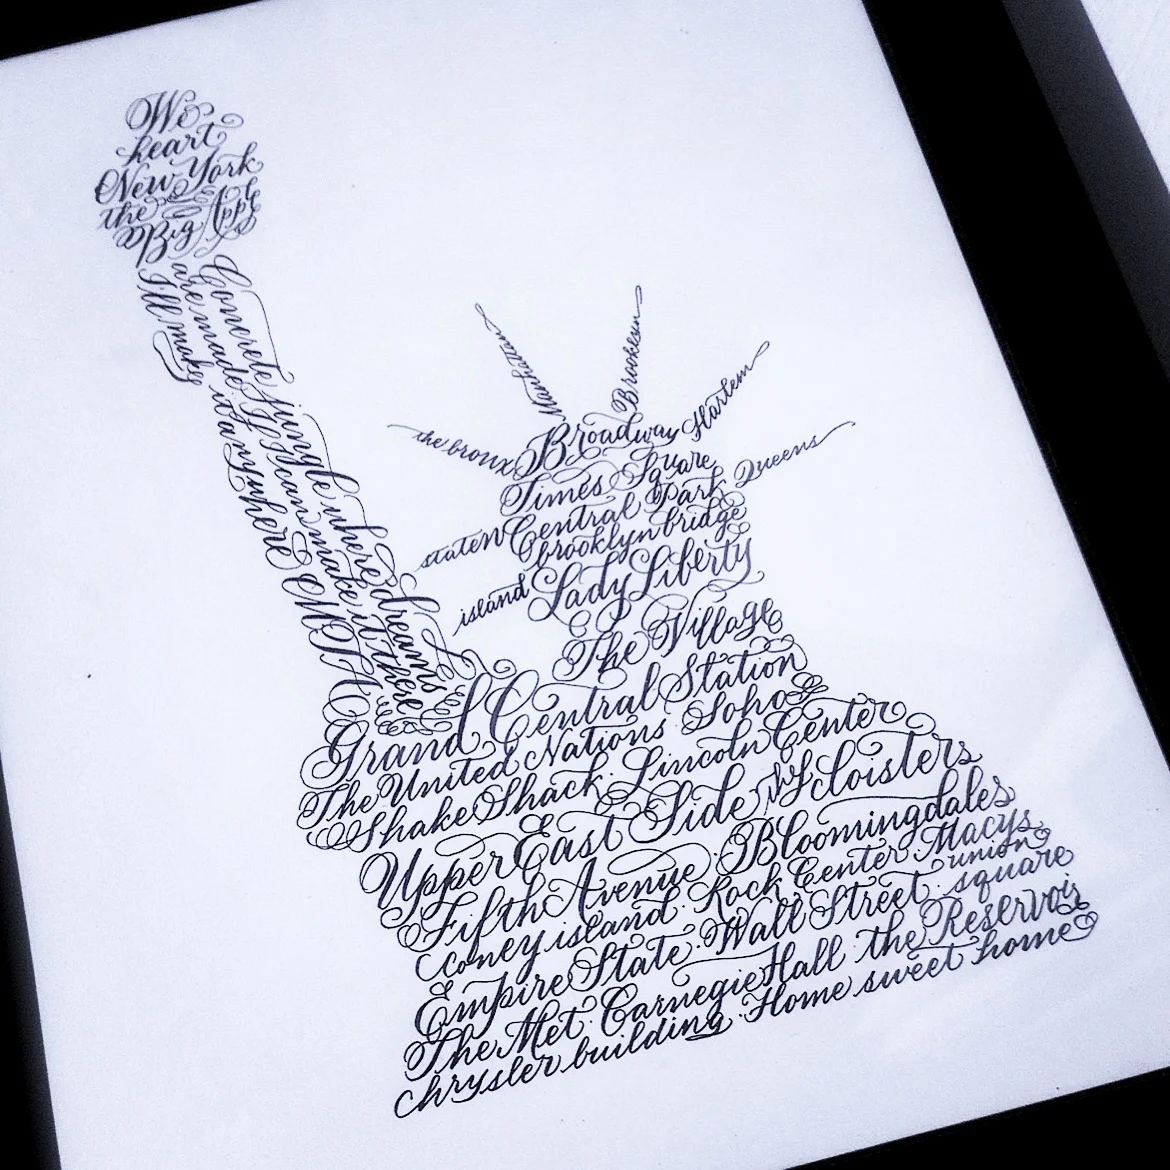 We
heart
New York
the
Big Apple
Concrete jungle where dreams
are made If I can make it there
I'll make it anywhere
the bronx
Manhattan
Brooklyn
Harlem
Queens
staten
island
Broadway
Times Square
Central Park
brooklyn bridge
Lady Liberty
The Village
Grand Central Station
The United Nations Soho
Shake Shack Lincoln Center
Upper East Side Cloisters
Fifth Avenue Bloomingdales
coney island Rock Center Macys
Empire State Wall Street union square
The Met Carnegie Hall the Reservoir
chrysler building Home sweet home